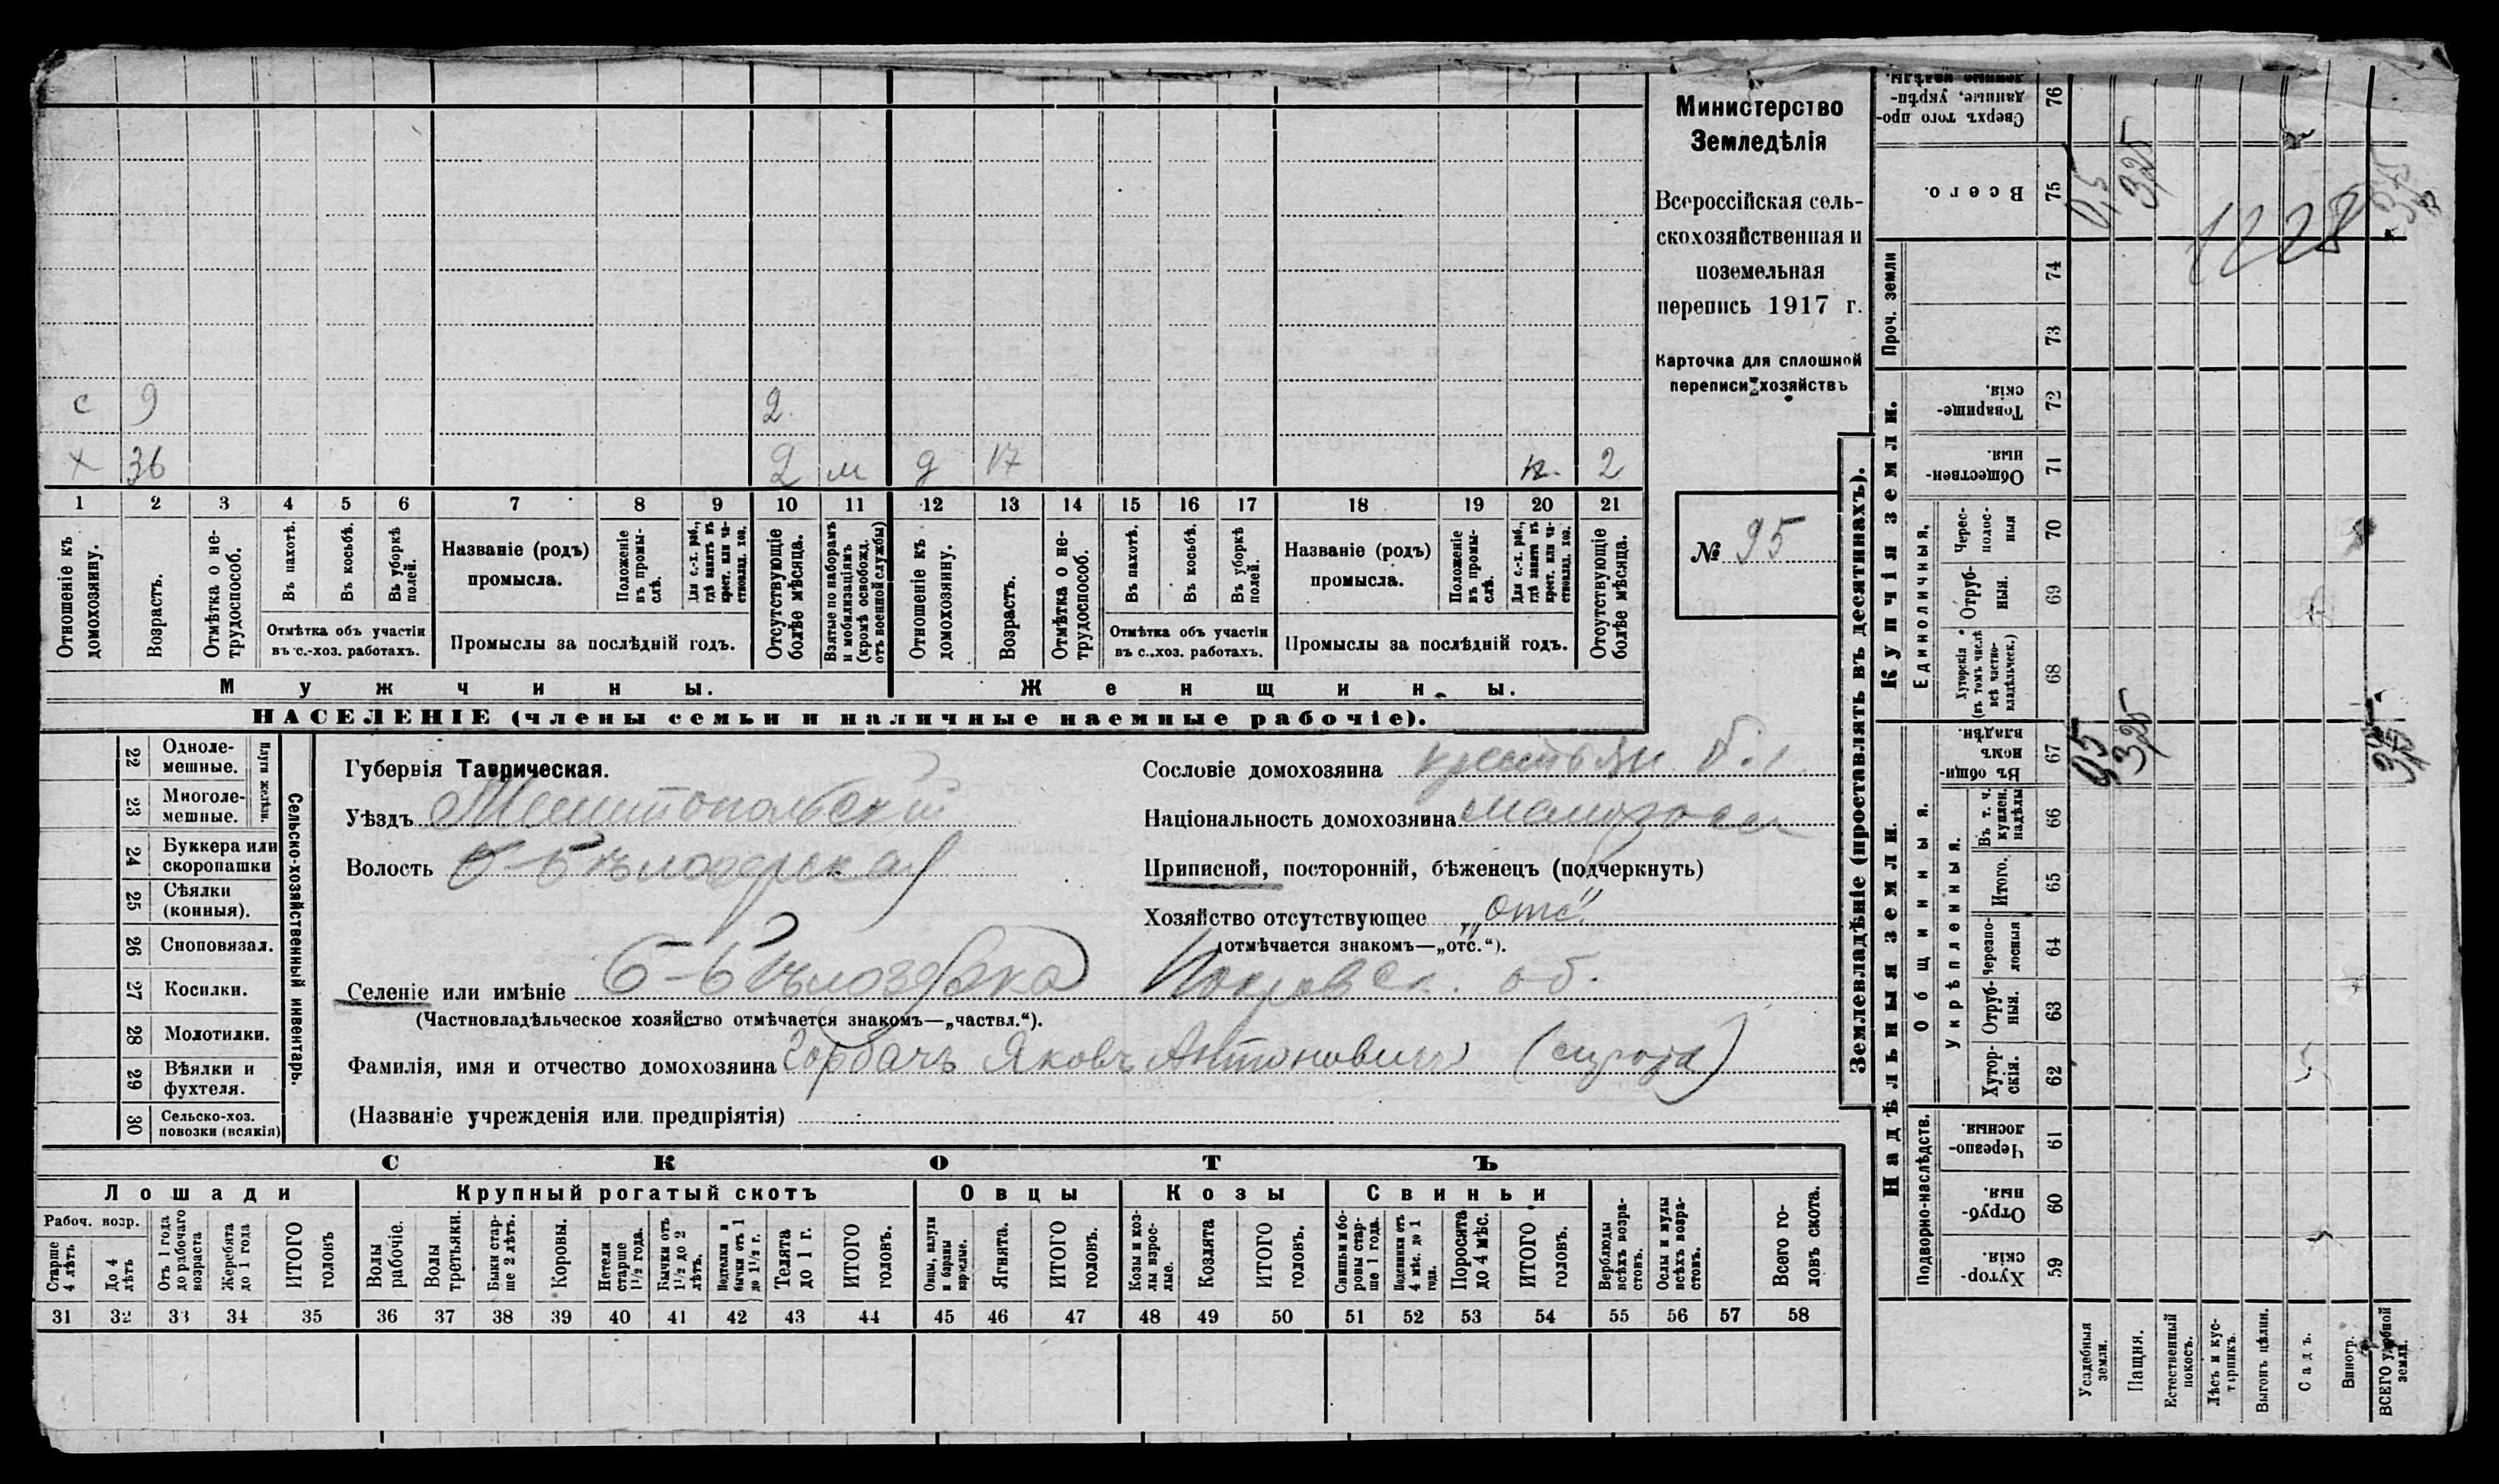 Министерство
Земледѣлія
Всероссійская сель-
скохозяйственная и
поземельная
перепись 1917 г.
Карточка для сплошной
переписи хозяйствъ
№ 95
с 9 2
х 36 2 м д 17 п. 2
1 2 3 4 5 6 7 8 9 10 11 12 13 14 15 16 17 18 19 20 21
Отношеніе къ домохозяину.
Возрастъ.
Отмѣтка о не-
трудоспособ.
Въ пахотѣ.
Въ косьбѣ.
Въ уборкѣ полей.
Отмѣтка объ участіи
въ с.-хоз. работахъ.
Названіе (родъ)
промысла.
Положеніе въ промы-
слѣ.
Для с.-х. раб., гдѣ занятъ въ крест. или ча-
стновлад. хоз.
Промыслы за послѣдній годъ.
Отсутствующіе болѣе мѣсяца.
Взятые по наборамъ и мобилизаціямъ (кромѣ освобожд. отъ военной службы)
Отношеніе къ домохозяину.
Возрастъ.
Отмѣтка о не-
трудоспособ.
Въ пахотѣ.
Въ косьбѣ.
Въ уборкѣ полей.
Отмѣтка объ участіи
въ с.-хоз. работахъ.
Названіе (родъ)
промысла.
Положеніе въ промы-
слѣ.
Для с.-х. раб., гдѣ занята въ крест. или ча-
стновлад. хоз.
Промыслы за послѣдній годъ.
Отсутствующіе болѣе мѣсяца.
Мужчины.
Женщины.
НАСЕЛЕНІЕ (члены семьи и наличные наемные рабочіе).
Сельско-хозяйственный инвентарь.
Плуги желѣзн.
22 Одноле-
мешные.
23 Многоле-
мешные.
24 Буккера или
скоропашки
25 Сѣялки
(конныя).
26 Сноповязал.
27 Косилки.
28 Молотилки.
29 Вѣялки и
фухтеля.
30 Сельско-хоз.
повозки (всякія)
Губернія Таврическая.
Уѣздъ Мелитопольскій
Волость Б-Бѣлозерская
Селеніе или имѣніе Б-Бѣлозерка Покровск. об.
(Частновладѣльческое хозяйство отмѣчается знакомъ—„частвл.“).
Фамилія, имя и отчество домохозяина Горбачъ Яковъ Антоновичъ (сирота)
(Названіе учрежденія или предпріятія)
Сословіе домохозяина крестьян.
Національность домохозяина малоросс
Приписной, посторонній, бѣженецъ (подчеркнуть)
Хозяйство отсутствующее „отс“
(отмѣчается знакомъ—„отс.“).
СКОТЪ
Лошади
Крупный рогатый скотъ
Овцы
Козы
Свиньи
Рабоч. возр.
Старше 4 лѣтъ
До 4 лѣтъ
Отъ 1 года до рабочаго возраста
Жеребята до 1 года
ИТОГО головъ
Волы рабочіе.
Волы третьяки.
Быки стар-
ше 2 лѣтъ.
Коровы.
Нетели старше 1½ года.
Бычки отъ 1½ до 2 лѣтъ.
Подтелки и бычки отъ 1 до 1½ г.
Телята до 1 г.
ИТОГО головъ.
Овцы, валухи и бараны взрослые.
Ягнята.
ИТОГО головъ.
Козы и коз-
лы взрос-
лые.
Козлята
ИТОГО головъ.
Свиньи и бо-
ровы стар-
ше 1 года.
Подсвинки отъ 4 мѣс. до 1 года.
Поросята до 4 мѣс.
ИТОГО головъ.
Верблюды всѣхъ возра-
стовъ.
Ослы и мулы всѣхъ возра-
стовъ.
Всего го-
ловъ скота.
31 32 33 34 35 36 37 38 39 40 41 42 43 44 45 46 47 48 49 50 51 52 53 54 55 56 57 58
Землевладѣніе (проставлять въ десятинахъ).
Купчія земли.
Надѣльныя земли.
Сверхъ того про-
данные, укрѣп-
ленные надѣлы. 76
Всего. 75 0,5 3,25
1228
Проч. земли
74
73
Товарище-
скія. 72
Обществен-
ныя. 71
Единоличныя.
Черес-
полос-
ныя 70
Отруб-
ныя. 69
Хуторскія (въ томъ числѣ всѣ частно-
владѣльческ.) 68
Общинныя.
Въ общин-
номъ владѣн. 67 0,5 3,25
Укрѣпленныя.
Въ т. ч. куплен. надѣлы 66
Итого. 65
Черезпо-
лосныя 64
Отруб-
ныя. 63
Хутор-
скія. 62
Подворно-наслѣдств.
Черезпо-
лосныя. 61
Отруб-
ныя. 60
Хутор-
скія. 59
Усадебныя земли.
Пашня.
Естественный покосъ.
Лѣсъ и кус-
тарникъ.
Выгонъ цѣлин.
Садъ.
Виногр.
ВСЕГО удобной земли.